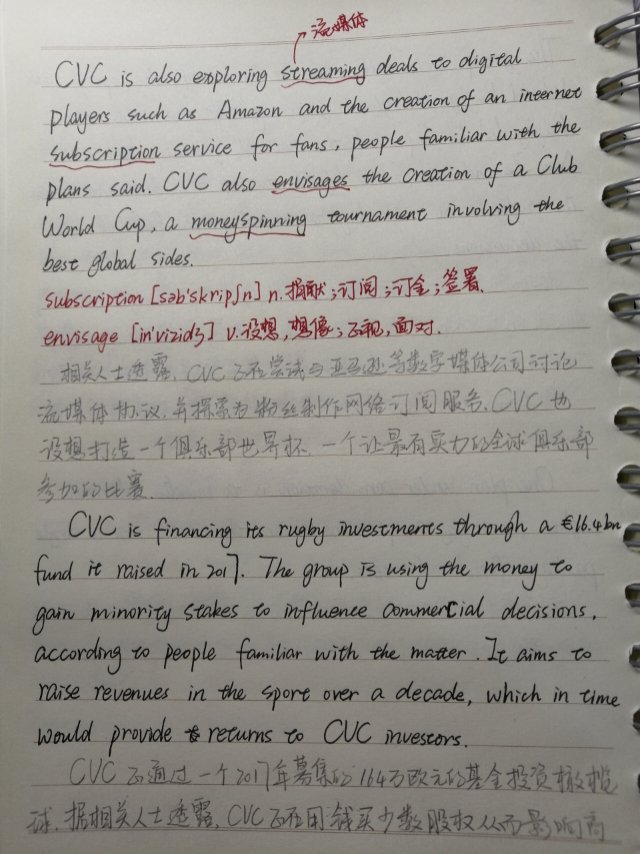 流媒体
CVC is also exploring streaming deals to digital
players such as Amazon and the creation of an internet
subscription service for fans, people familiar with the
plans said. CVC also envisages the creation of a Club
World Cup, a moneyspinning tournament involving the
best global sides.
subscription [səb'skripʃn] n.捐献;订阅;订金;签署.
envisage [in'vizidʒ] v.设想,想像;正视,面对.
相关人士透露,CVC正在尝试与亚马逊等数字媒体公司讨论
流媒体协议,并探索为粉丝制作网络订阅服务.CVC也
设想打造一个俱乐部世界杯,一个让最有实力的全球俱乐部
参加的比赛.
CVC is financing its rugby investments through a €16.4bn
fund it raised in 2017. The group is using the money to
gain minority stakes to influence commercial decisions,
according to people familiar with the matter. It aims to
raise revenues in the sport over a decade, which in time
would provide returns to CVC investors.
CVC正通过一个2017年募集的164万欧元的基金投资橄榄
球.据相关人士透露,CVC正在用钱买少数股权从而影响商